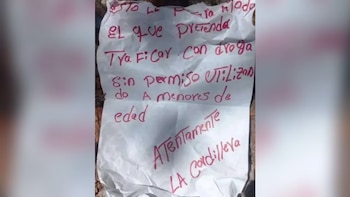 esto le pasara atodo
el que pretenda
traficar con droga
sin permiso utilizan
do a menores de
edad
Atentamente
LA cordillera